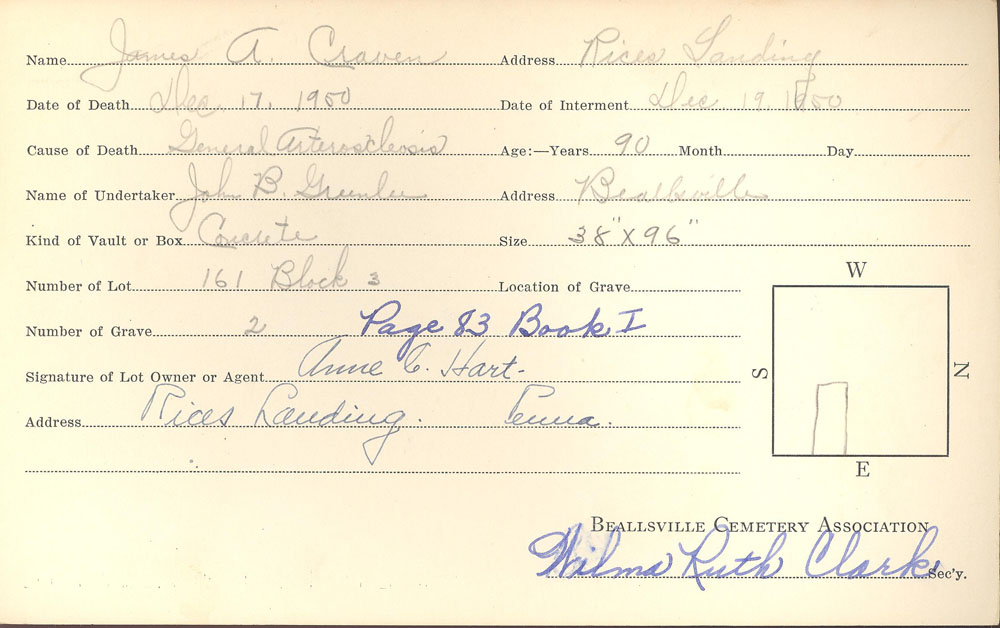 Name James A. Craven Address Rices Landing
Date of Death Dec. 17, 1950 Date of Interment Dec 19 1950
Cause of Death General Arterosclerosis Age:—Years 90 Month Day
Name of Undertaker John B. Greenlee Address Beallsville
Kind of Vault or Box Concrete Size 38" X 96"
Number of Lot 161 Block 3 Location of Grave
W
Number of Grave 2 Page 83 Book I
Signature of Lot Owner or Agent Anne C. Hart.
S N
Address Rices Landing. Penna.
E
BEALLSVILLE CEMETERY ASSOCIATION
Wilma Ruth Clark Sec'y.